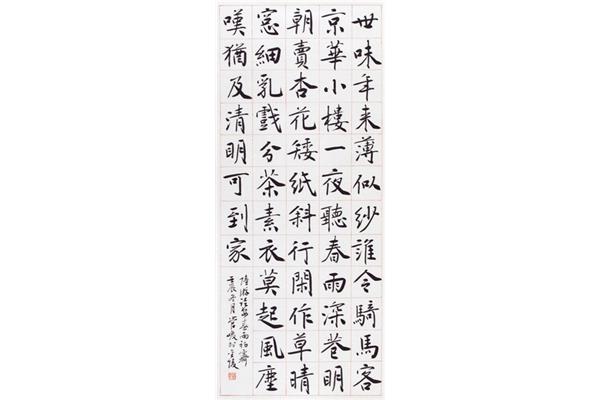 世味年来薄似紗誰令騎馬客
京華小樓一夜聽春雨深巷明
朝賣杏花矮紙斜行閑作草晴
窓細乳戲分茶素衣莫起風塵
嘆猶及清明可到家
陸游詩臨安春雨初霽
壬辰冬月管峻於金陵